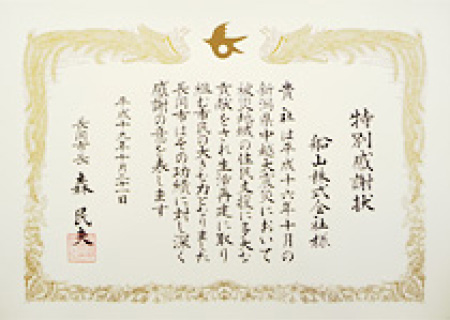 特別感謝状
船山株式会社様
貴社は平成十六年十月の
新潟県中越大震災において
被災地域の住民支援に多大な
貢献をされ生活再建に取り
組む市民の大きな力となりました
長岡市はその功績に対し深く
感謝の意を表します
平成十九年十月二十一日
長岡市長 森 民夫